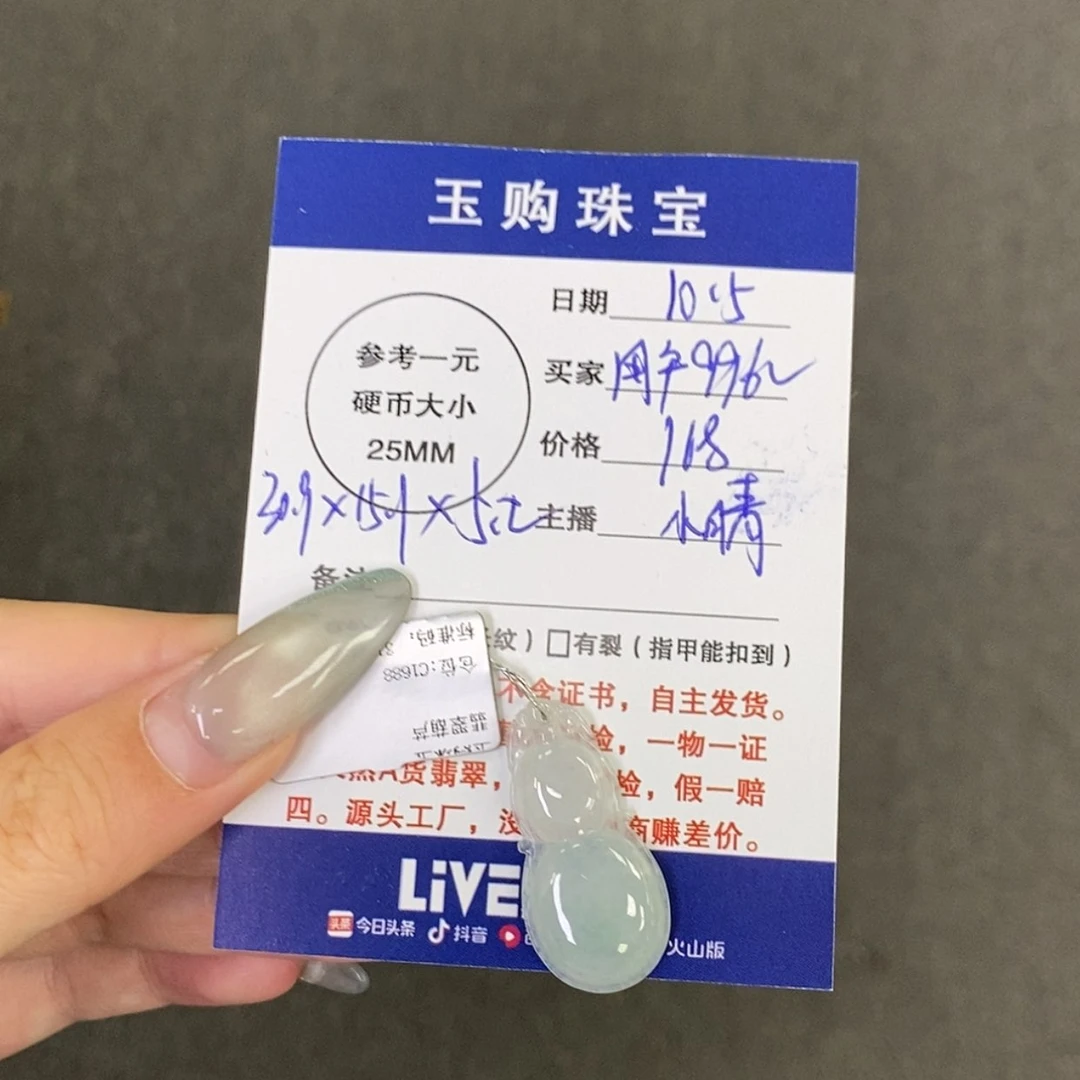 玉购珠宝
日期 10.5
参考一元
硬币大小
25MM
买家 用户9962
价格 118
主播 小晴
30.9×15.1×5.2
备注
纹）□有裂（指甲能扣到）
标准码：
仓位:C1688
翡翠葫芦
不含证书，自主发货。
检，一物一证
A货翡翠， 检，假一赔
四。源头工厂，没 商赚差价。
LiVE
头条 今日头条 抖音 火山版